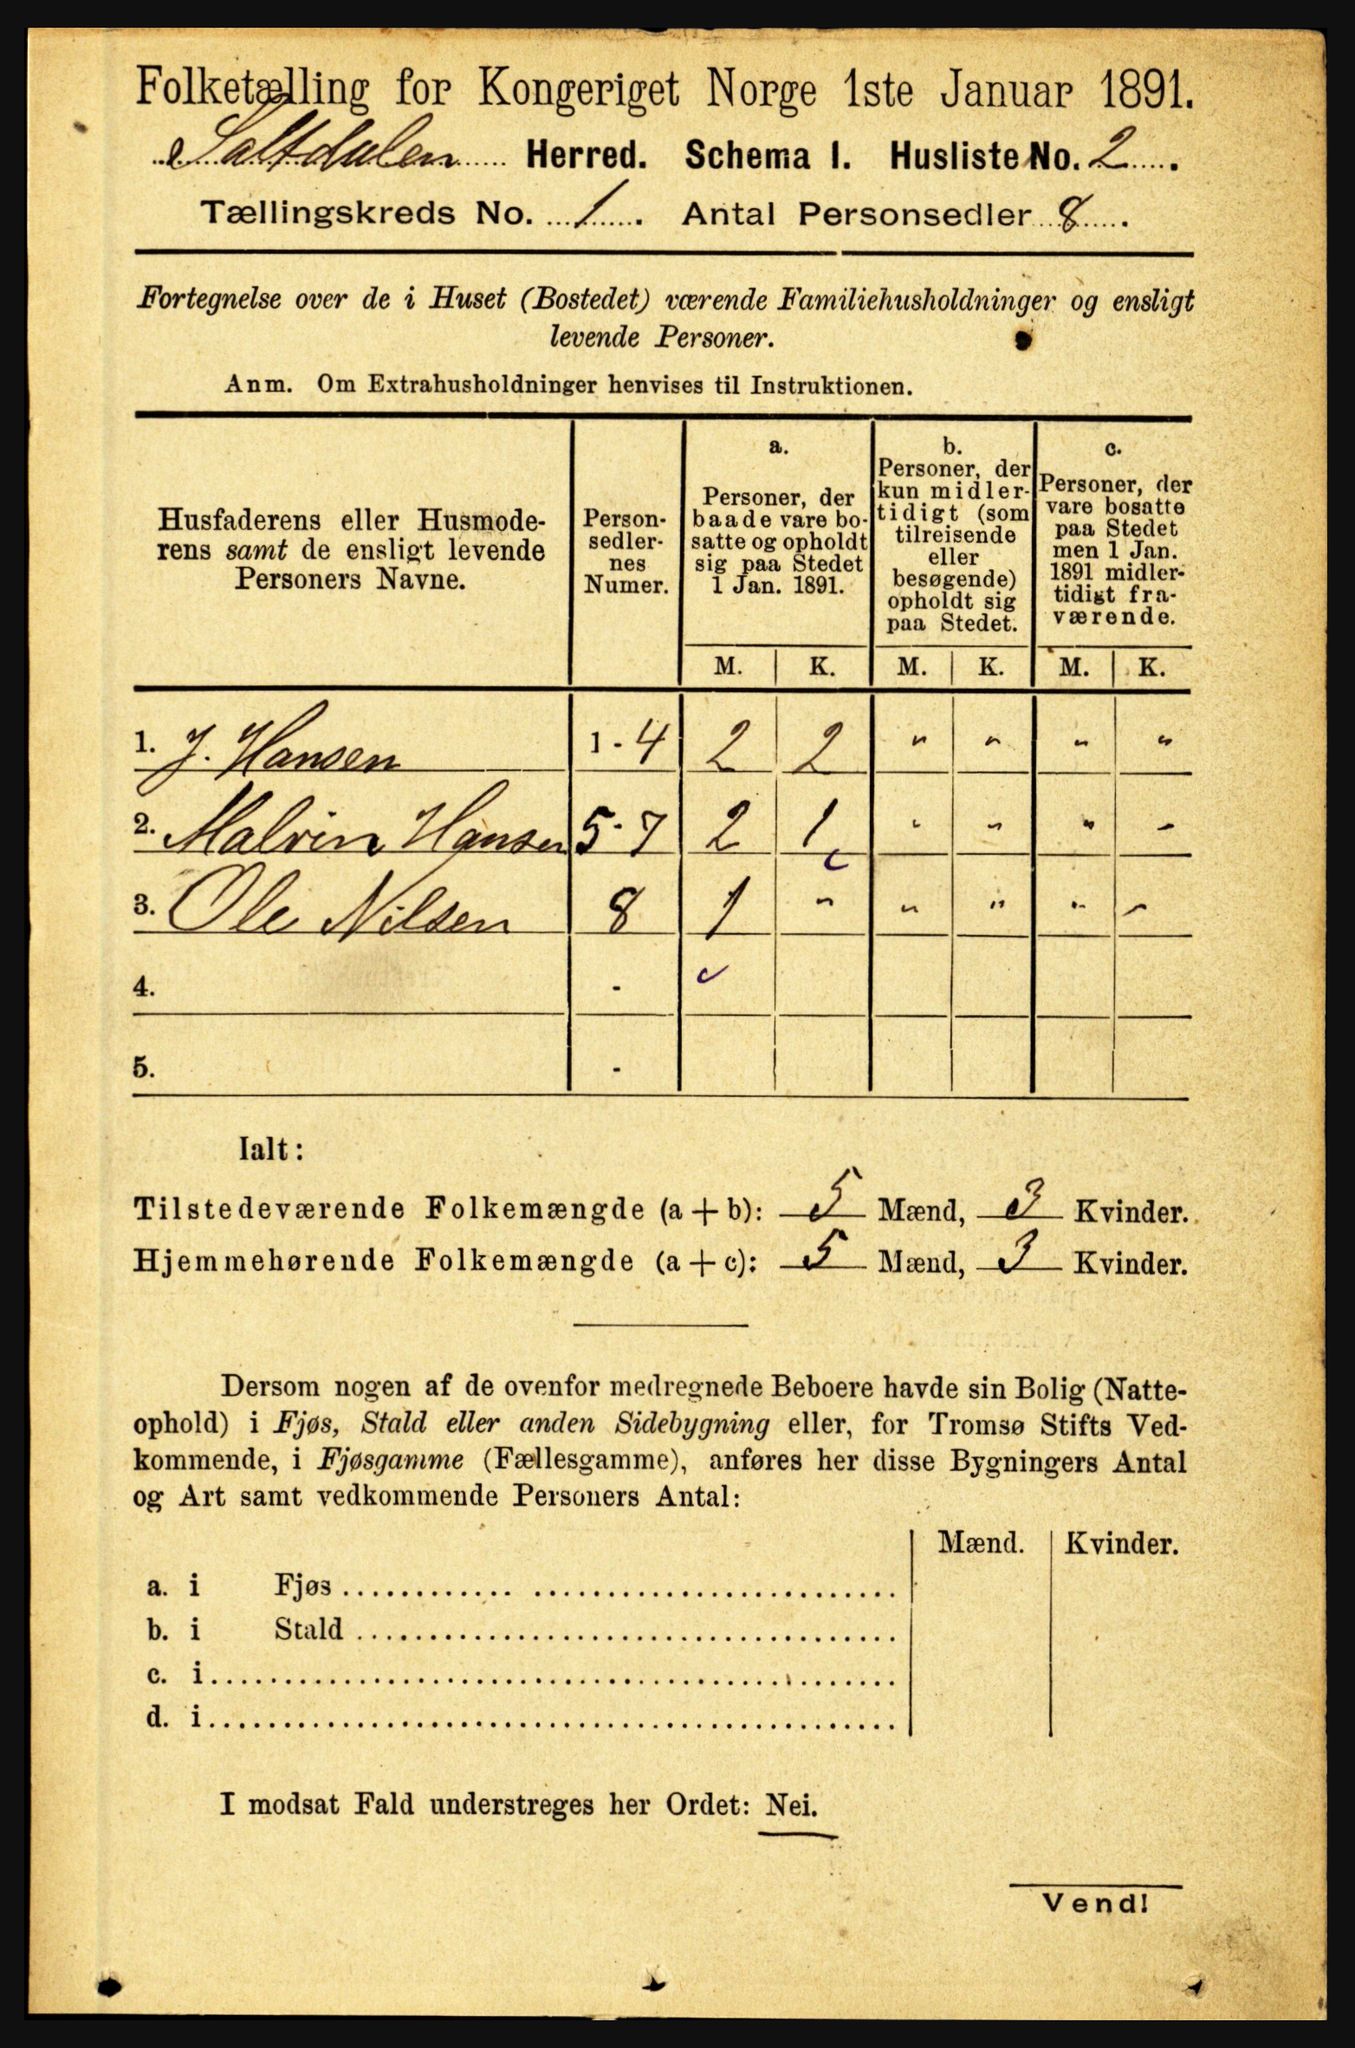 Folketælling for Kongeriget Norge 1ste Januar 1891.
Saltdalen Herred. Schema I. Husliste No. 2.
Tællingskreds No. 1. Antal Personsedler 8.
Fortegnelse over de i Huset (Bostedet) værende Familiehusholdninger og ensligt
levende Personer.
Anm. Om Extrahusholdninger henvises til Instruktionen.
Husfaderens eller Husmode-
rens samt de ensligt levende
Personers Navne.
Person-
sedler-
nes
Numer.
a.
Personer, der
baade vare bo-
satte og opholdt
sig paa Stedet
1 Jan. 1891.
b.
Personer, der
kun midler-
tidigt (som
tilreisende
eller
besøgende)
opholdt sig
paa Stedet.
c.
Personer, der
vare bosatte
paa Stedet
men 1 Jan.
1891 midler-
tidigt fra-
værende.
M. K. M. K. M. K.
1. J. Hansen 1 - 4 2 2 " " " "
2. Malvin Hansen 5 - 7 2 1 " " " "
3. Ole Nilsen 8 1 " " " " "
4. -
5. -
Ialt:
Tilstedeværende Folkemængde (a + b): 5 Mænd, 3 Kvinder.
Hjemmehørende Folkemængde (a + c): 5 Mænd, 3 Kvinder.
Dersom nogen af de ovenfor medregnede Beboere havde sin Bolig (Natte-
ophold) i Fjøs, Stald eller anden Sidebygning eller, for Tromsø Stifts Ved-
kommende, i Fjøsgamme (Fællesgamme), anføres her disse Bygningers Antal
og Art samt vedkommende Personers Antal:
Mænd. Kvinder.
a. i Fjøs
b. i Stald
c. i
d. i
I modsat Fald understreges her Ordet: Nei.
Vend!